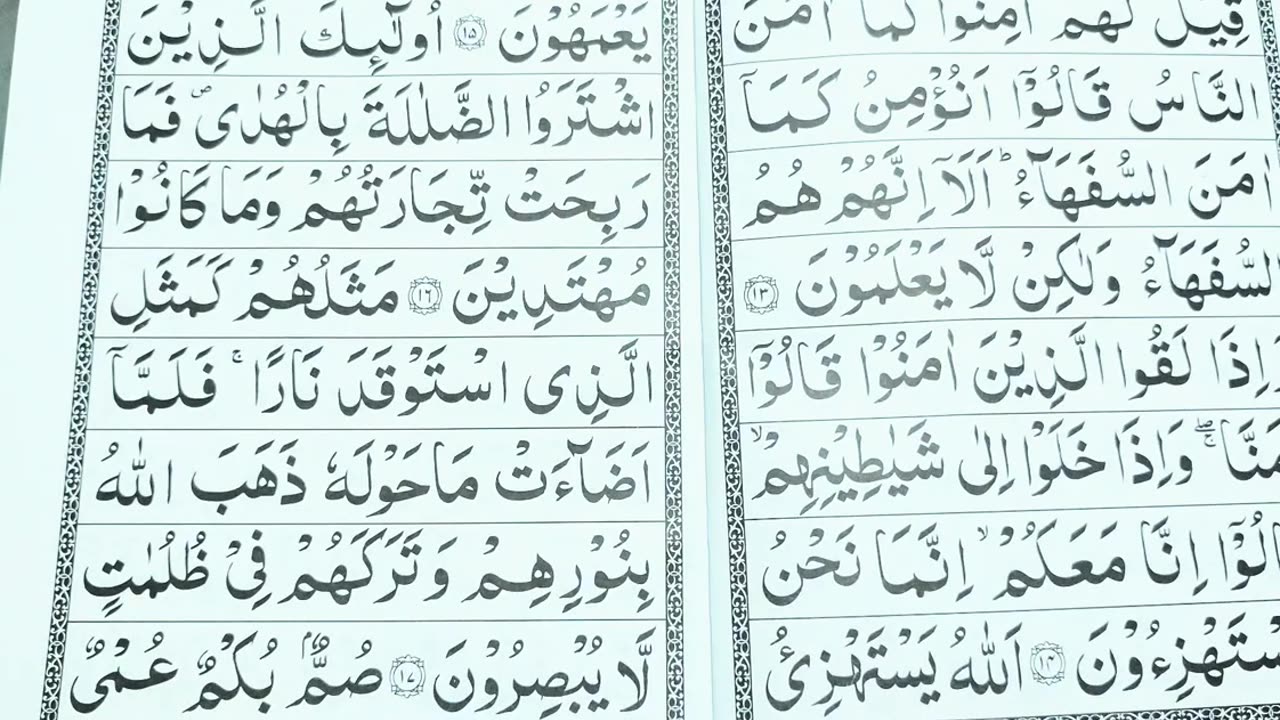 قِيْلَ لَهُمْ اٰمِنُوْا كَمَاۤ اٰمَنَ
النَّاسُ قَالُوْۤا اَنُؤْمِنُ كَمَاۤ
اٰمَنَ السُّفَهَآءُ ؕ اَلَاۤ اِنَّهُمْ هُمُ
السُّفَهَآءُ وَلٰكِنْ لَّا يَعْلَمُوْنَ ۝۱۳
وَاِذَا لَقُوا الَّذِيْنَ اٰمَنُوْا قَالُوْۤا
اٰمَنَّا ۖۚ وَاِذَا خَلَوْا اِلٰى شَيٰطِيْنِهِمْ ۙ
قَالُوْۤا اِنَّا مَعَكُمْ ۙ اِنَّمَا نَحْنُ
مُسْتَهْزِءُوْنَ ۝۱۴ اَللّٰهُ يَسْتَهْزِئُ
يَعْمَهُوْنَ ۝۱۵ اُولٰٓئِكَ الَّذِيْنَ
اشْتَرَوُا الضَّلٰلَةَ بِالْهُدٰى ۪ فَمَا
رَبِحَتْ تِّجَارَتُهُمْ وَمَا كَانُوْا
مُهْتَدِيْنَ ۝۱۶ مَثَلُهُمْ كَمَثَلِ
الَّذِى اسْتَوْقَدَ نَارًا ۚ فَلَمَّاۤ
اَضَآءَتْ مَا حَوْلَهٗ ذَهَبَ اللّٰهُ
بِنُوْرِهِمْ وَتَرَكَهُمْ فِىْ ظُلُمٰتٍ
لَّا يُبْصِرُوْنَ ۝۱۷ صُمٌّۢ بُكْمٌ عُمْىٌ